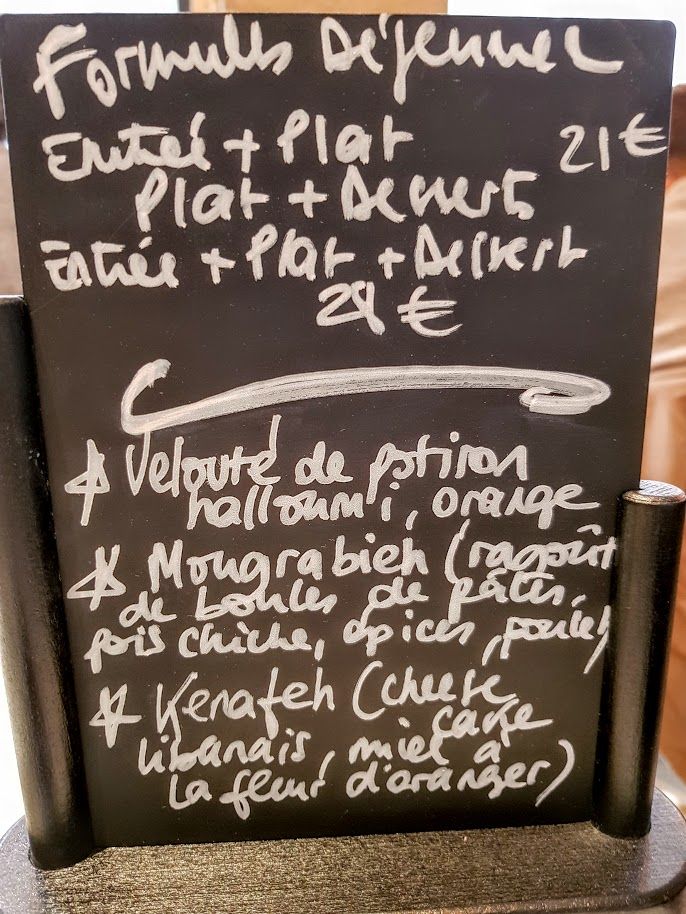 Formules Déjeuner
Entrée + Plat 21 €
Plat + Dessert
Entrée + Plat + Dessert
29 €
Velouté de potiron
halloumi, orange
Mougrabieh (ragoût
de boules de pâtes,
pois chiche, épices, poulet)
Kenafeh (cheese
cake
libanais, miel à
la fleur d'oranger)